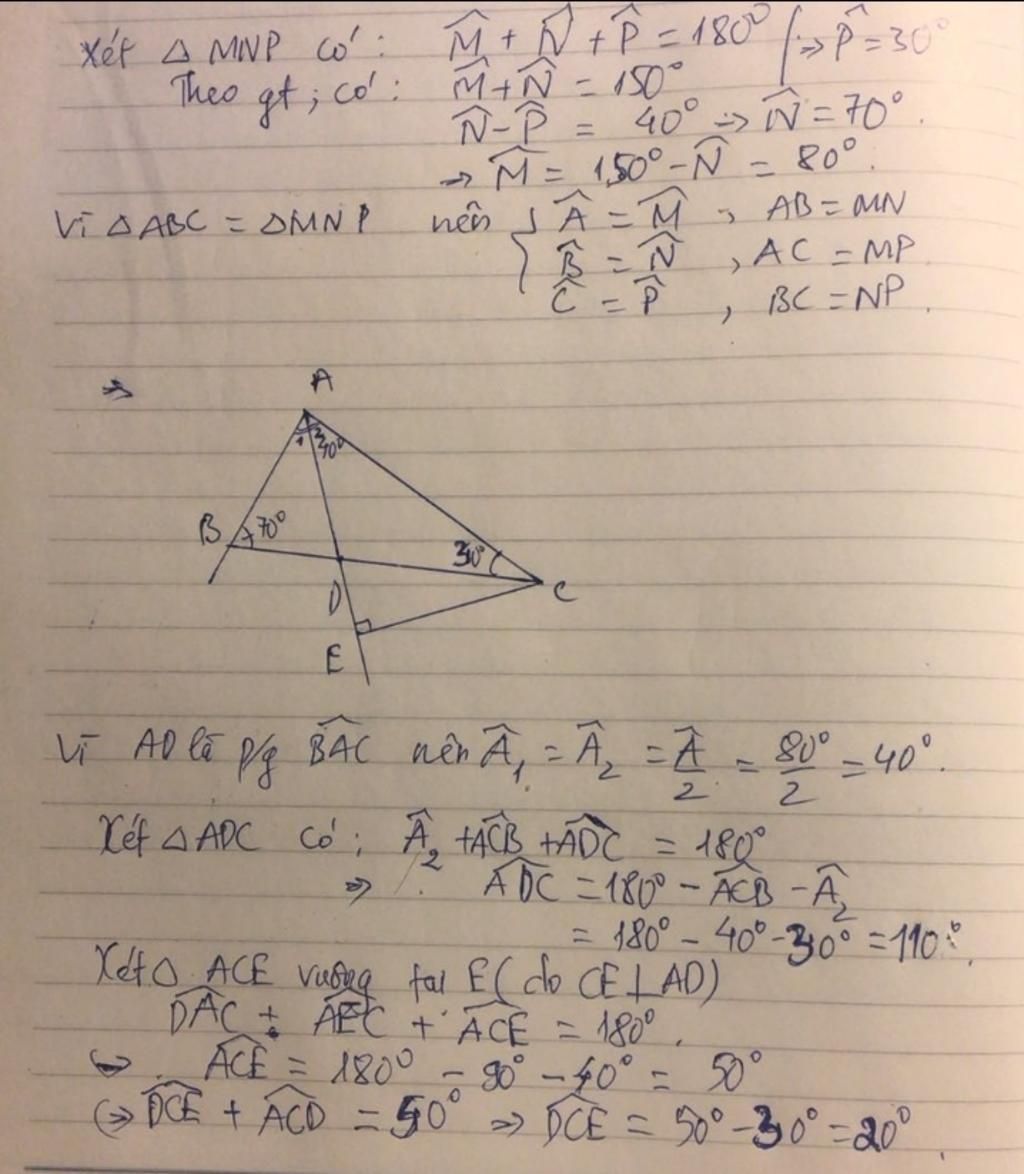 Xét △ MNP có: M̂ + N̂ + P̂ = 180° ⇒ P̂ = 30°
Theo gt; có: M̂ + N̂ = 150°
N̂ - P̂ = 40° ⇒ N̂ = 70°.
⇒ M̂ = 150° - N̂ = 80°.
Vì △ABC = △MNP nên { Â = M̂ , AB = MN
B̂ = N̂ , AC = MP
Ĉ = P̂ , BC = NP.
⇒
A
1 2 40°
B 70°
30°
C
D
E
Vì AD là p/g BAC nên Â₁ = Â₂ = Â/2 = 80°/2 = 40°.
Xét △ADC có: Â₂ + ACB + ADC = 180°
⇒ ADC = 180° - ACB - Â₂
= 180° - 40° - 30° = 110°.
Xét △ ACE vuông tại E (do CE⊥AD)
DAC + AEC + ACE = 180°.
⇒ ACE = 180° - 90° - 40° = 50°
⇔ DCE + ACD = 50° ⇒ DCE = 50° - 30° = 20°.